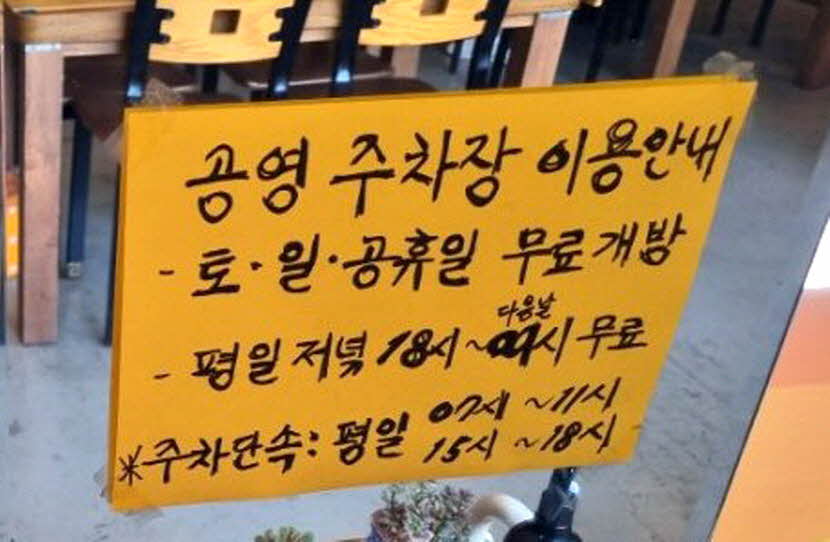 공영 주차장 이용안내
- 토·일·공휴일 무료개방
다음날
- 평일 저녁 18시 ~ 09시 무료
※주차단속: 평일 07시 ~11시
15시 ~18시